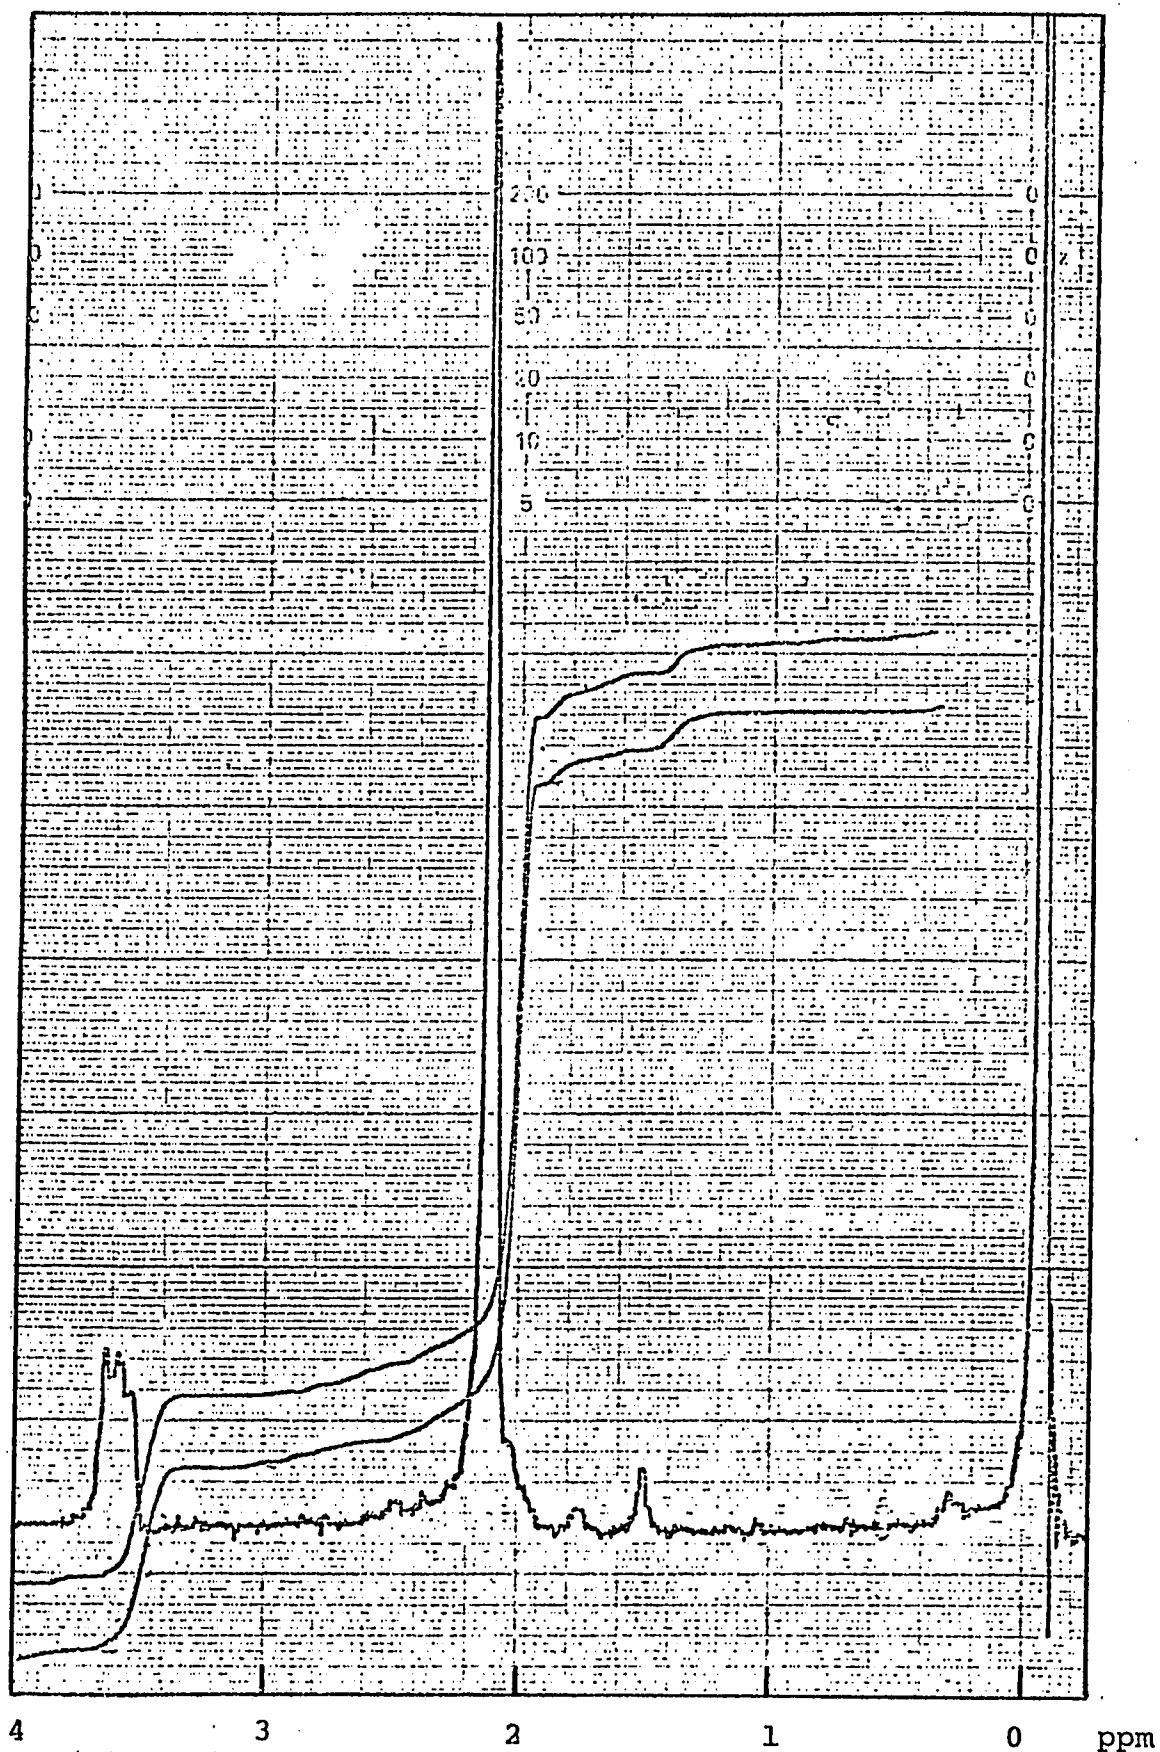 200 0
100 0
50 0
20 0
10 0
5 0
4 3 2 1 0 ppm